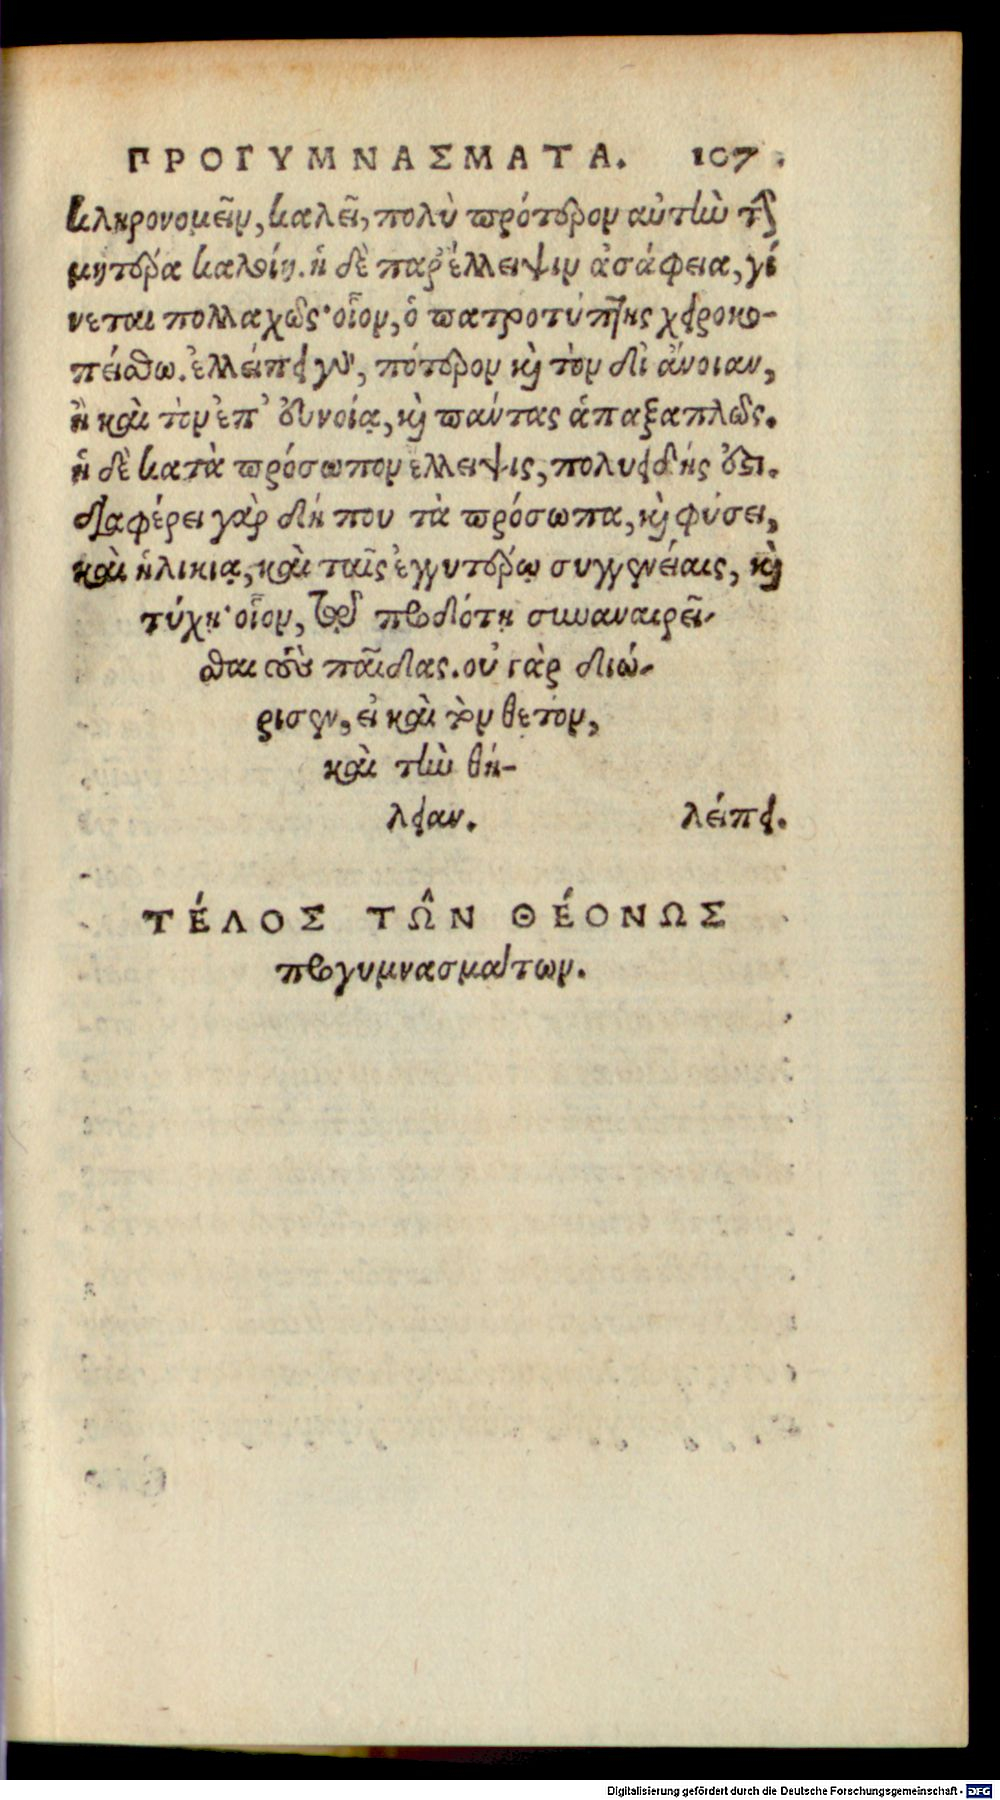 ΠΡΟΓΥΜΝΑΣΜΑΤΑ. 107.
κληρονομεῖν, καλεῖ, πολὺ πρότερον αὐτὴν τὴν
μητέρα καλοίη. ἡ δὲ παρ' ἔλλειψιν ἀσάφεια, γί
νεται πολλαχῶς· οἷον, ὁ πατροτύπτης χειροκο-
πείσθω. ἐλλείπει γὰρ, πότερον καὶ τὸν δι' ἄνοιαν,
ἢ καὶ τὸν ἐπ' εὐνοίᾳ, καὶ πάντας ἁπαξαπλῶς.
ἡ δὲ κατὰ πρόσωπον ἔλλειψις, πολυειδής ἐστι.
διαφέρει γὰρ δή που τὰ πρόσωπα, καὶ φύσει,
καὶ ἡλικίᾳ, καὶ ταῖς ἐγγυτέρω συγγενείαις, καὶ
τύχῃ· οἷον, τῷ προδότῃ συναναιρεῖ-
σθαι τοὺς παῖδας. οὐ γὰρ διώ-
ρισεν, εἰ καὶ τὸν θετὸν,
καὶ τὴν θή-
λειαν. λείπει.
ΤΈΛΟΣ ΤΩ͂Ν ΘΈΟΝΩΣ
προγυμνασμάτων.
Digitalisierung gefördert durch die Deutsche Forschungsgemeinschaft - DFG